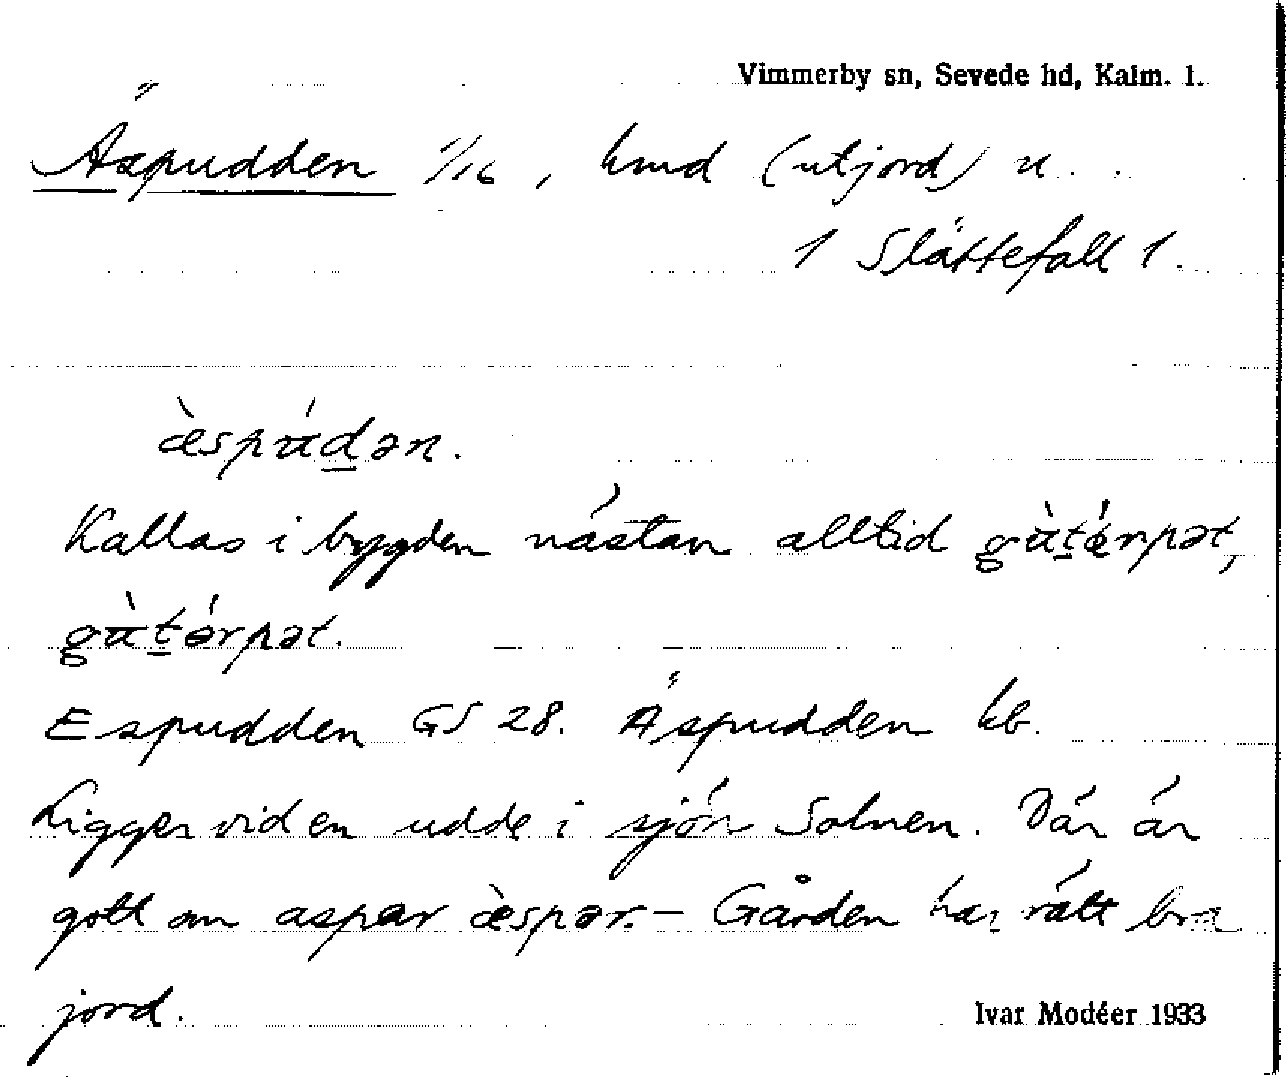 Vimmerby sn, Sevede hd, Kalm. l.
Äspudden 1/16, hmd (utjord) u.
1 Slättefall 1.
æ̀spʉ́d̲ən.
Kallas i bygden nästan alltid gʉ̀t̲ǿrpət,
gʉ̀t̲ə́rpət.
Espudden GS 28. Äspudden kb.
Ligger vid en udde i sjön Solnen. Där är
gott om aspar æ̀spər. – Gården har rätt bra
jord.
Ivar Modéer 1933